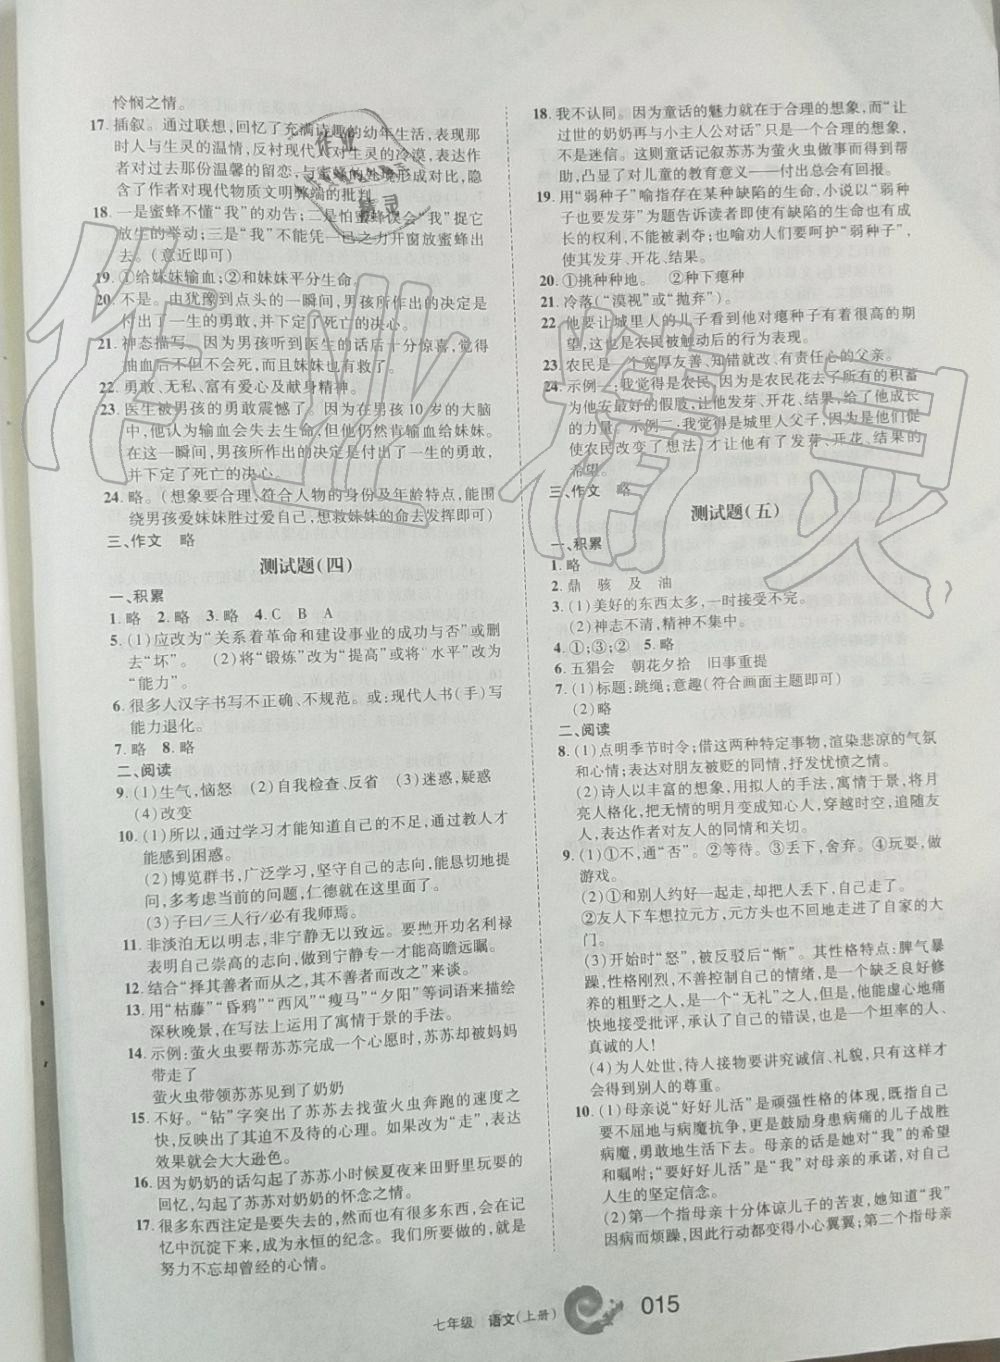 怜悯之情。
17. 插叙。通过联想,回忆了充满诗趣的幼年生活,表现那
时人与生灵的温情,反衬现代人对生灵的冷漠,表达作
者对过去那份温馨的留恋,与蜜蜂的处境形成对比,隐
含了作者对现代物质文明弊端的批判。
18. 一是蜜蜂不懂“我”的劝告;二是怕蜜蜂误会“我”捉它
放生的举动;三是“我”不能凭一己之力开窗放蜜蜂出
去。(意近即可)
19. ①给妹妹输血;②和妹妹平分生命。
20. 不是。由犹豫到点头的一瞬间,男孩所作出的决定是
付出了一生的勇敢,并下定了死亡的决心。
21. 神态描写。因为男孩听到医生的话后十分惊喜,觉得
抽血后不但不会死,而且妹妹也有救了。
22. 勇敢、无私、富有爱心及献身精神。
23. 医生被男孩的勇敢震憾了。因为在男孩 10 岁的大脑
中,他认为输血会失去生命,但他仍然肯输血给妹妹。
在这一瞬间,男孩所作出的决定是付出了一生的勇敢,
并下定了死亡的决心。
24. 略。(想象要合理,符合人物的身份及年龄特点,能围
绕男孩爱妹妹胜过爱自己,想救妹妹的命去发挥即可)
三、作文 略
测试题(四)
一、积累
1. 略 2. 略 3. 略 4. C B A
5. (1)应改为“关系着革命和建设事业的成功与否”或删
去“坏”。 (2)将“锻炼”改为“提高”或将“水平”改为
“能力”。
6. 很多人汉字书写不正确、不规范。或:现代人书(手)写
能力退化。
7. 略 8. 略
二、阅读
9. (1)生气,恼怒 (2)自我检查、反省 (3)迷惑,疑惑
(4)改变
10. (1)所以,通过学习才能知道自己的不足,通过教人才
能感到困惑。
(2)博览群书,广泛学习,坚守自己的志向,能恳切地提
问,多考虑当前的问题,仁德就在这里面了。
(3)子曰/三人行/必有我师焉。
11. 非淡泊无以明志,非宁静无以致远。要抛开功名利禄
表明自己崇高的志向,做到宁静专一才能高瞻远瞩。
12. 结合“择其善者而从之,其不善者而改之”来谈。
13. 用“枯藤”“昏鸦”“西风”“瘦马”“夕阳”等词语来描绘
深秋晚景,在写法上运用了寓情于景的手法。
14. 示例:萤火虫要帮苏苏完成一个心愿,苏苏却被妈妈
带走了
萤火虫带领苏苏见到了奶奶
15. 不好。“钻”字突出了苏苏去找萤火虫奔跑的速度之
快,反映出了其迫不及待的心理。如果改成“走”,表达
效果就会大大逊色。
16. 因为奶奶的话勾起了苏苏小时候夏夜来田野里玩耍的
回忆,勾起了苏苏对奶奶的怀念之情。
17. 很多东西注定是要失去的,然而也有很多东西,会在记
忆中沉淀下来,成为永恒的纪念。我们所要做的,就是
努力不忘却曾经的心情。
18. 我不认同。因为童话的魅力就在于合理的想象,而“让
过世的奶奶再与小主人公对话”只是一个合理的想象,
不是迷信。这则童话记叙苏苏为萤火虫做事而得到帮
助,凸显了儿童的教育意义——付出总会有回报。
19. 用“弱种子”喻指存在某种缺陷的生命,小说以“弱种
子也要发芽”为题告诉读者即使有缺陷的生命也有成
长的权利,不能被剥夺;也喻劝人们要呵护“弱种子”,
使其发芽、开花、结果。
20. ①挑种种地。 ②种下瘪种
21. 冷落(“漠视”或“抛弃”)。
22. 他要让城里人的儿子看到他对瘪种子有着很高的期
望,这也是农民被触动后的行为表现。
23. 农民是一个宽厚友善、知错就改、有责任心的父亲。
24. 示例一:我觉得是农民,因为是农民花去了所有的积蓄
为他安最好的假肢,让他发芽、开花、结果,给了他成长
的力量。示例二:我觉得是城里人父子,因为是他们促
使农民改变了想法,才让他有了发芽、开花、结果的
希望。
三、作文 略
测试题(五)
一、积累
1. 略
2. 鼎 骇 及 油
3. (1)美好的东西太多,一时接受不完。
(2)神志不清,精神不集中。
4. ①;③;② 5. 略
6. 五猖会 朝花夕拾 旧事重提
7. (1)标题:跳绳;意趣(符合画面主题即可)
(2)略
二、阅读
8. (1)点明季节时令;借这两种特定事物,渲染悲凉的气氛
和心情;表达对朋友被贬的同情,抒发忧愤之情。
(2)诗人以丰富的想象,用拟人的手法,寓情于景,将月
亮人格化,把无情的明月变成知心人,穿越时空,追随友
人,表达作者对友人的同情和关切。
9. (1)①不,通“否”。②等待。③丢下,舍弃。④玩耍,做
游戏。
(2)①和别人约好一起走,却把人丢下,自己走了。
②友人下车想拉元方,元方头也不回地走进了自家的大
门。
(3)开始时“怒”,被反驳后“惭”。其性格特点:脾气暴
躁,性格刚烈,不善控制自己的情绪,是一个缺乏良好修
养的粗野之人,是一个“无礼”之人,但他能虚心地痛
快地接受批评,承认了自己的错误,也是一个坦率的人、
真诚的人!
(4)为人处世,待人接物要讲究诚信、礼貌,只有这样才
会得到别人的尊重。
10. (1)母亲说“好好儿活”是顽强性格的体现,既指自己
要不屈地与病魔抗争,更是鼓励身患病痛的儿子战胜
病魔,勇敢地生活下去。母亲的话是她对“我”的希望
和嘱咐;“要好好儿活”是“我”对母亲的承诺,对自己
人生的坚定信念。
(2)第一个指母亲十分体谅儿子的苦衷,她知道“我”
因病而烦躁,因此行动都变得小心翼翼;第二个指母亲
七年级 语文(上册) 015
作业精灵
作业精灵